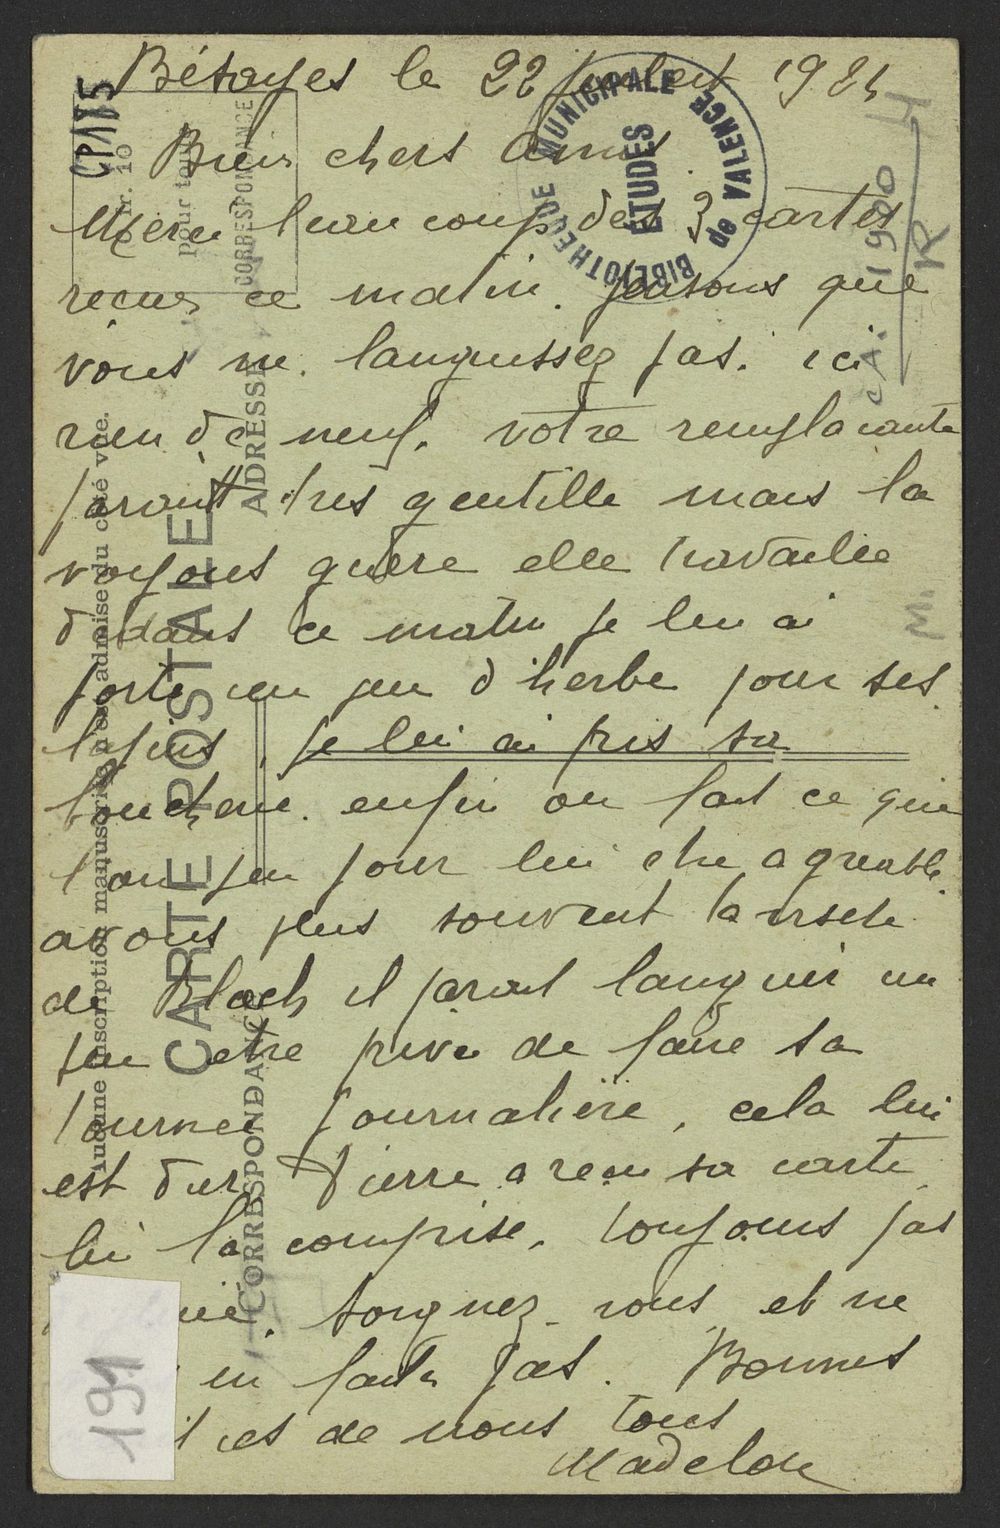 Bétayes le 22 juillet 1924
Bien chers amis
Merci beaucoup des 3 cartes
recues ce matin. pensons que
vous ne languissez pas. ici
rien de neuf. votre remplacante
parait tres gentille mais la
voyons guère elle travaille
dedans ce matin je lui ai
porté un peu d'herbe pour ses
lapins, je lui ai pris sa
boucherie. enfin on fait ce que
l'on peu pour lui etre agreable.
avons plus souvent la visite
de Bloch il parait languir un
peu etre privé de faire sa
tournee journalière, cela lui
est dur. Pierre a recu sa carte
lui la comprise. toujours pas
soignez vous et ne
en faite pas. Bonnes
de nous tous
Madelon
CARTE POSTALE
Aucune inscription manuscrite n'est admise du côté vue.
CORRESPONDANCE
ADRESSE
10
pour toute
CORRESPONDANCE
BIBLIOTHEQUE MUNICIPALE
ETUDES
de VALENCE
CP185
cA. 1900
H
R
M.
191